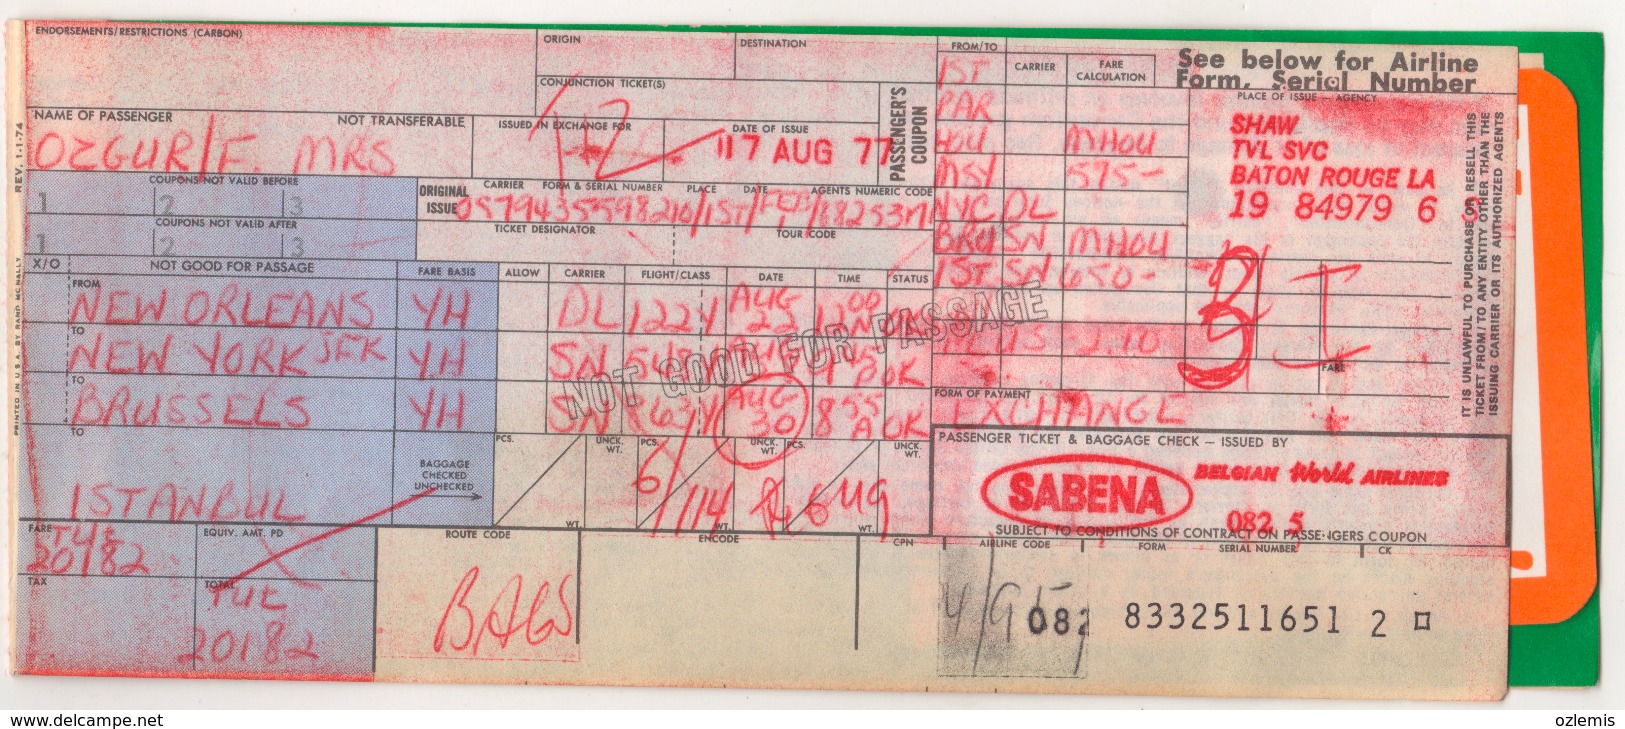 ENDORSEMENTS/RESTRICTIONS (CARBON)
ORIGIN
DESTINATION
CONJUNCTION TICKET(S)
FROM/TO
CARRIER
FARE CALCULATION
See below for Airline
Form, Serial Number
PLACE OF ISSUE — AGENCY
NAME OF PASSENGER
NOT TRANSFERABLE
OZGUR/F. MRS
ISSUED IN EXCHANGE FOR
DATE OF ISSUE
17 AUG 77
PASSENGER'S COUPON
SHAW
TVL SVC
BATON ROUGE LA
19 84979 6
IST
PAR
HOU MHOU
MSY 575-
NYC DL
BRU SN MHOU
IST SN 650-
COUPONS NOT VALID BEFORE
1 2 3
COUPONS NOT VALID AFTER
1 2 3
ORIGINAL ISSUE
CARRIER FORM & SERIAL NUMBER PLACE DATE AGENTS NUMERIC CODE
TICKET DESIGNATOR
TOUR CODE
X/O
NOT GOOD FOR PASSAGE
FARE BASIS
ALLOW
CARRIER
FLIGHT/CLASS
DATE
TIME
STATUS
FROM
NEW ORLEANS YH DL 122Y AUG 25
TO
NEW YORK JFK YH SN OK
TO
BRUSSELS YH SN AUG 30 8 55 A OK
TO
ISTANBUL
NOT GOOD FOR PASSAGE
BAGGAGE CHECKED UNCHECKED
PCS. UNCK. WT. PCS. UNCK. WT. PCS. UNCK. WT.
WT. WT. WT.
FARE
FORM OF PAYMENT
EXCHANGE
PASSENGER TICKET & BAGGAGE CHECK — ISSUED BY
SABENA BELGIAN World AIRLINES
082 5
SUBJECT TO CONDITIONS OF CONTRACT ON PASSENGERS COUPON
FARE
20182
EQUIV. AMT. PD
ROUTE CODE
ENCODE
CPN
AIRLINE CODE
FORM
SERIAL NUMBER
CK
TAX
TOTAL
20182
BAGS
082 8332511651 2
IT IS UNLAWFUL TO PURCHASE OR RESELL THIS
TICKET FROM/TO ANY ENTITY OTHER THAN THE
ISSUING CARRIER OR ITS AUTHORIZED AGENTS
REV. 1-1-74
PRINTED IN U.S.A. BY RAND McNALLY
www.delcampe.net
ozlemis